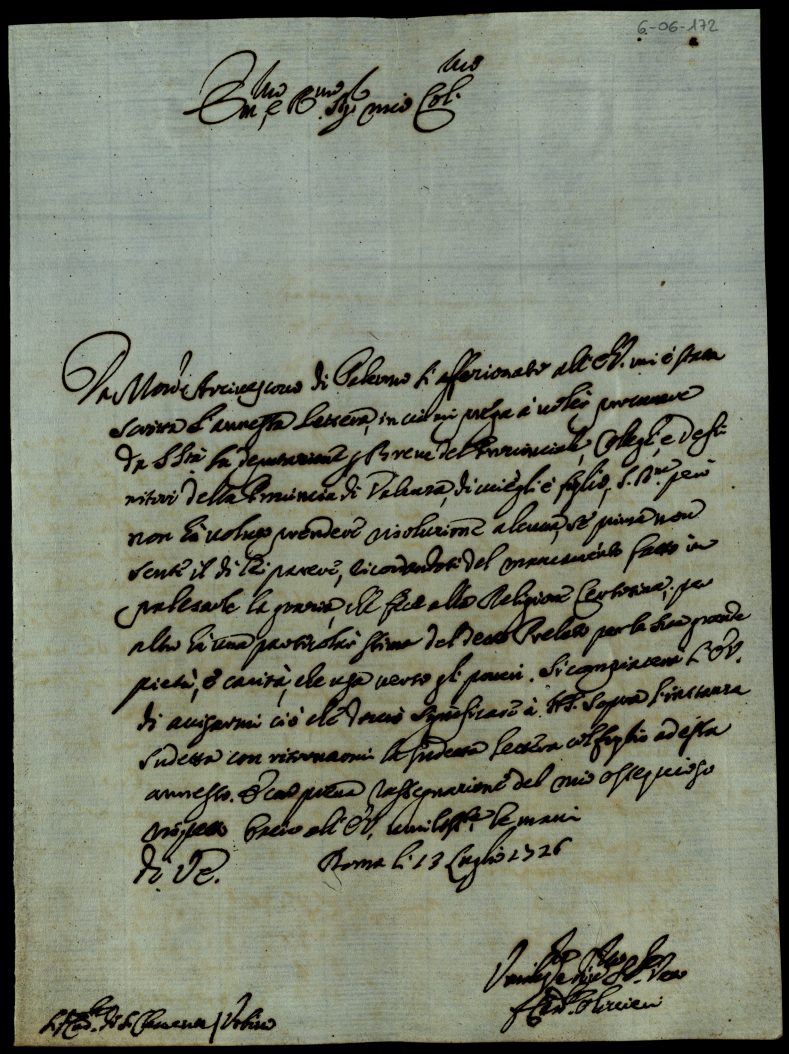 6-06-172
Em.mo e R.mo Sig.r mio Col.mo
Da Mons.r Arcivescovo di Palermo si affezionato all'E.V. mi è stata
scritta l'annessa lettera, in cui mi prega à voler procurare
da S. S.tà la deputazione per Breve del Provinciale, Colleghi, e Defi
nitori della Provincia di di cui egli è figlio, S. B.ne però
non hà voluto prendere risoluzione alcuna, se prima non
sente il di Lei parere, ricordandosi del mancamento fatto in
palesarle la grazia, che fece alla Religione Certosina; per
altro hà una particolar stima del detto Prelato per la sua grande
pietà, e carità, che usa verso gli poveri. Si compiacerà l'E.V.
di avisarmi ciò che dovrò significare à S.S. sopra l'instanza
sudetta con ritornarmi la sudetta lettera col foglio ad essa
annesso. E con piena rassegnazione del mio ossequioso
rispetto bacio all'E.V. umiliss.te le mani
Di V.E. Roma li 13 Luglio 1726
Umiliss.mo Ser.re Vero
S.r Card.le di S. Clemente / Urbino
F. Card.le Olivieri